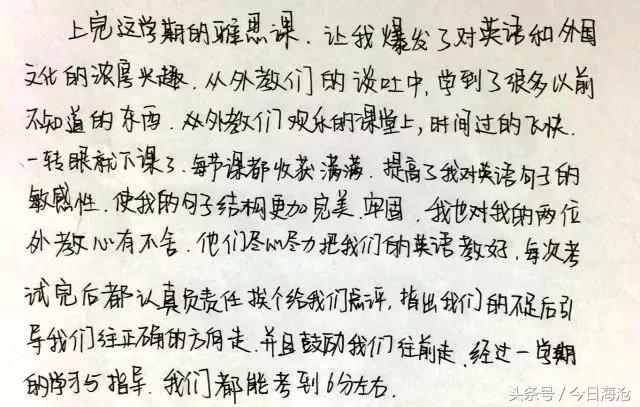 上完这学期的雅思课、让我爆发了对英语和外国
文化的浓厚兴趣、从外教们的谈吐中,学到了很多以前
不知道的东西、从外教们欢乐的课堂上,时间过的飞快、
一转眼就下课了、每节课都收获满满、提高了我对英语句子的
敏感性、使我的句子结构更加完美、牢固、我也对我的两位
外教心有不舍、他们尽心尽力把我们的英语教好,每次考
试完后都认真负责任挨个给我们点评,指出我们的不足后引
导我们往正确的方向走、并且鼓励我们往前走、经过一学期
的学习与指导、我们都能考到6分左右、
头条号/今日海沧